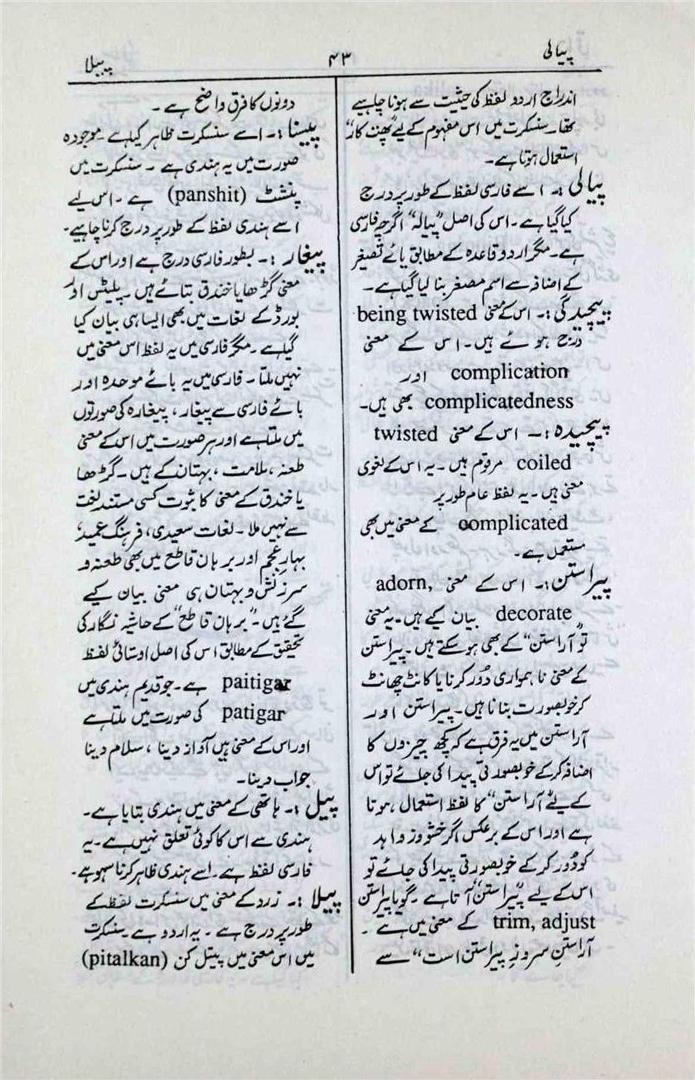 پیالی
۴۳
پیلا
اندراج اردو لفظ کی حیثیت سے ہونا چاہیے
تھا۔ سنسکرت میں اس مفہوم کے لیے
استعمال ہوتا ہے۔
پیالی :۔ اسے فارسی لفظ کے طور پر درج
کیا گیا ہے۔ اس کی اصل "پیالہ" اگرچہ فارسی
ہے۔ مگر اردو قاعدہ کے مطابق یائے تصغیر
کے اضافہ سے اسم مصغر بنا لیا گیا ہے۔
پیچیدگی :۔ اس کے معنی being twisted
درج ہوئے ہیں۔ اس کے معنی
complication اور
complicatedness بھی ہیں۔
پیچیدہ :۔ اس کے معنی twisted
coiled مرقوم ہیں۔ یہ اس کے لغوی
معنی ہیں۔ یہ لفظ عام طور پر
complicated کے معنی میں بھی
مستعمل ہے۔
پیراستن :۔ اس کے معنی adorn,
decorate بیان کیے ہیں۔ یہ معنی
تو "آراستن" کے بھی ہو سکتے ہیں۔ پیراستن
کے معنی نا ہمواری دُور کرنا یا کانٹ چھانٹ
کر خوبصورت بنانا ہیں۔ پیراستن اور
آراستن میں یہ فرق ہے کہ کچھ چیزوں کا
اضافہ کرکے خوبصورتی پیدا کی جائے تو اس
کے لئے "آراستن" کا لفظ استعمال ہوتا
ہے اور اس کے برعکس اگر حشو و زواید
کو دُور کر کے خوبصورتی پیدا کی جائے تو
اس کے لیے "پیراستن" آتا ہے۔ گویا پیراستن
trim, adjust کے معنی میں ہے۔
آراستنِ سرو زِ پیراستن است" سے
دونوں کا فرق واضح ہے۔
پیسنا :۔ اسے سنسکرت ظاہر کیا ہے۔ موجودہ
صورت میں یہ ہندی ہے۔ سنسکرت میں
پنشٹ (panshit) ہے۔ اس لیے
اسے ہندی لفظ کے طور پر درج کرنا چاہیے۔
پیغار :۔ بطور فارسی درج ہے اور اس کے
معنی گڑھا یا خندق بتائے ہیں۔ پلیٹس اور
بورڈ کے لغات میں بھی ایسا ہی بیان کیا
گیا ہے۔ مگر فارسی میں یہ لفظ اس معنی میں
نہیں ملتا۔ فارسی میں یہ بائے موحدہ اور
بائے فارسی سے پیغار، پیغارہ کی صورتوں
میں ملتا ہے اور ہر صورت میں اس کے معنی
طعنہ، ملامت، بہتان کے ہیں۔ گڑھا
یا خندق کے معنی کا ثبوت کسی مستند لغت
سے نہیں ملا۔ لغات سعیدی، فرہنگ عمید،
بہارِ عجم اور برہان قاطع میں بھی طعنہ و
سرزنش و بہتان ہی معنی بیان کیے
گئے ہیں۔ "برہان قاطع" کے حاشیہ نگار کی
تحقیق کے مطابق اس کی اصل اوستائی لفظ
paitigar ہے۔ جو قدیم ہندی میں
patigar کی صورت میں ملتا ہے
اور اس کے معنی ہیں آواز دینا، سلام دینا
جواب دینا۔
پیل :۔ ہاتھی کے معنی میں ہندی بتایا ہے۔
ہندی سے اس کا کوئی تعلق نہیں ہے۔ یہ
فارسی لفظ ہے۔ اسے ہندی ظاہر کرنا سہو ہے۔
پیلا :۔ زرد کے معنی میں سنسکرت لفظ کے
طور پر درج ہے۔ یہ اردو ہے سنسکرت
میں اس معنی میں پیتل کن (pitalkan)